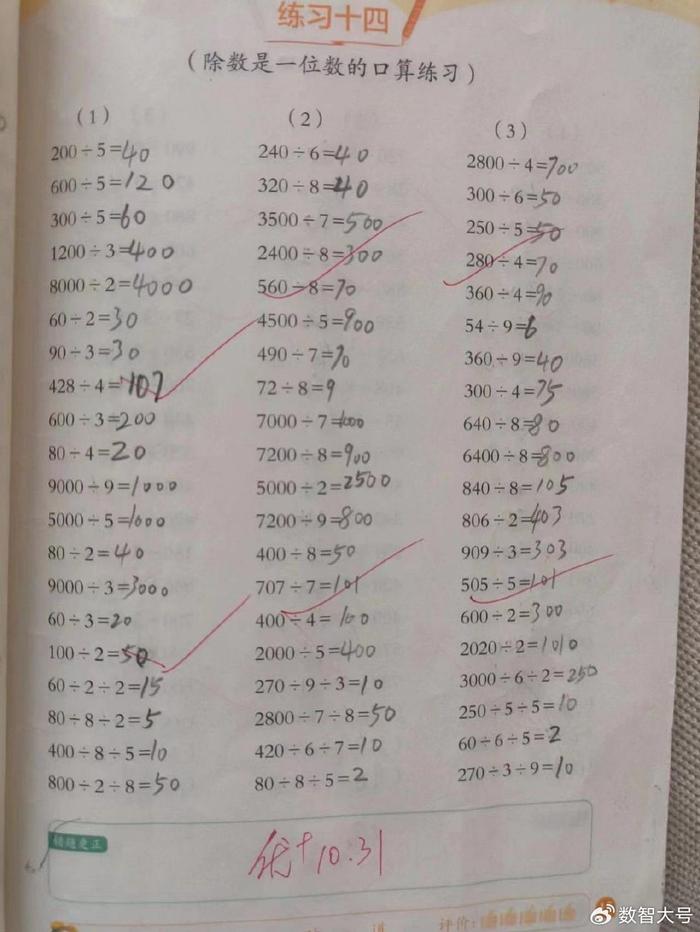 练习十四
(除数是一位数的口算练习)
(1)
200÷5=40
600÷5=120
300÷5=60
1200÷3=400
8000÷2=4000
60÷2=30
90÷3=30
428÷4=107
600÷3=200
80÷4=20
9000÷9=1000
5000÷5=1000
80÷2=40
9000÷3=3000
60÷3=20
100÷2=50
60÷2÷2=15
80÷8÷2=5
400÷8÷5=10
800÷2÷8=50
(2)
240÷6=40
320÷8=40
3500÷7=500
2400÷8=300
560÷8=70
4500÷5=900
490÷7=70
72÷8=9
7000÷7=1000
7200÷8=900
5000÷2=2500
7200÷9=800
400÷8=50
707÷7=101
400÷4=100
2000÷5=400
270÷9÷3=10
2800÷7÷8=50
420÷6÷7=10
80÷8÷5=2
(3)
2800÷4=700
300÷6=50
250÷5=50
280÷4=70
360÷4=90
54÷9=6
360÷9=40
300÷4=75
640÷8=80
6400÷8=800
840÷8=105
806÷2=403
909÷3=303
505÷5=101
600÷2=300
2020÷2=1010
3000÷6÷2=250
250÷5÷5=10
60÷6÷5=2
270÷3÷9=10
错题更正
优+ 10.31
评价:
@数智大号